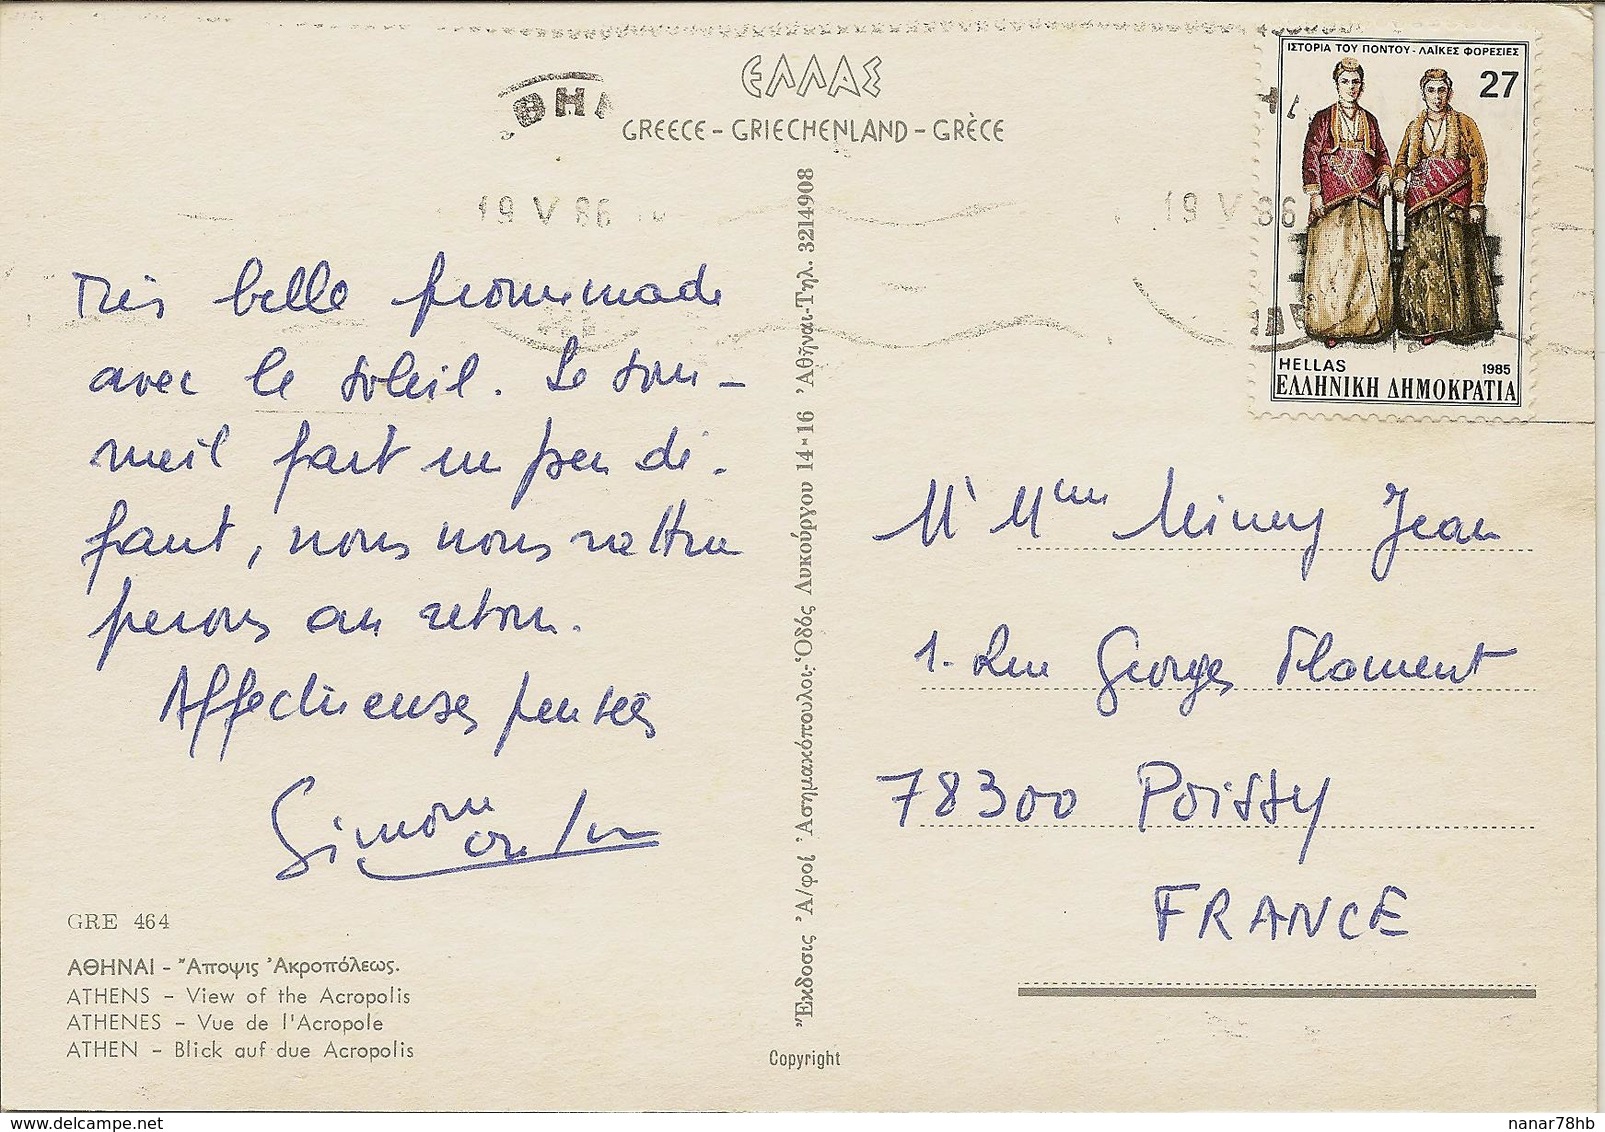 ΕΛΛΑΣ
GREECE - GRIECHENLAND - GRÈCE
ΙΣΤΟΡΙΑ ΤΟΥ ΠΟΝΤΟΥ - ΛΑΪΚΕΣ ΦΟΡΕΣΙΕΣ
27
HELLAS 1985
ΕΛΛΗΝΙΚΗ ΔΗΜΟΚΡΑΤΙΑ
19 V 86
19 V 86
Très belle promenade
avec le soleil. Le som-
meil fait un peu dé-
faut, nous nous rattra
perons au retour.
Affectueuses pensées
Simone
Mr Mme Jean
1. Rue Georges Flament
78300 Poissy
FRANCE
GRE 464
ΑΘΗΝΑΙ - Ἄποψις Ἀκροπόλεως.
ATHENS - View of the Acropolis
ATHENES - Vue de l'Acropole
ATHEN - Blick auf due Acropolis
Ἔκδοσις Ἀ/φοί Ἀσημακόπουλοι, Ὁδός Λυκούργου 14-16 Ἀθῆναι-Τηλ. 3214908
Copyright
nanar78hb